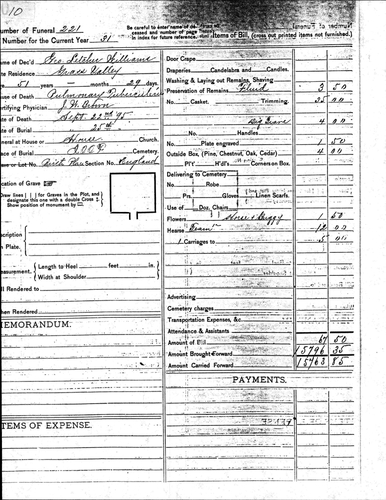 10
Number of Funeral 221
Number for the Current Year 31
Be careful to enter name of de-
ceased and number of page
in index for future reference.
Items of Bill, (cross out printed items not furnished.)
Name of Dec'd Geo Fletcher Williams
Residence Grass Valley
51 years months 29 days
Cause of Death Pulmonary Tuberculosis
Certifying Physician
Date of Death Sept 22nd 95
Date of Burial 25th
Funeral at House or House Church
Place of Burial I.O.O.F. Cemetery
Grave or Lot No. Birth Place Section No. England
Location of Grave
Draw lines in for Graves in the Plot, and
designate this one with a double Cross
Show position of monument by
Description
Plate.
Measurement.
Length to Heel feet in.
Width at Shoulder
Bill Rendered to
When Rendered
MEMORANDUM.
ITEMS OF EXPENSE.
Door Crape
Draperies Candelabra and Candles.
Washing & Laying out Remains, Shaving
Preservation of Remains Fluid 3 50
No. Casket. Trimming 35 00
Dig Grave 4 00
No. Handles
No. Plate engraved 1 50
Outside Box (Pine, Chestnut, Oak, Cedar) 4 00
Pl'y M'd's Corners on Box.
Delivering to Cemetery
No. Robe
Prs. Gloves Linen Scarfs.
Use of Doz. Chairs
Flowers Horse & Buggy 1 50
Hearse Team 12 00
1 Carriages to 5 00
Advertising
Cemetery charges
Transportation Expenses, &c
Attendance & Assistants
Amount of Bill 67 50
Amount Brought Forward 15796 35
Amount Carried Forward 15863 85
PAYMENTS.